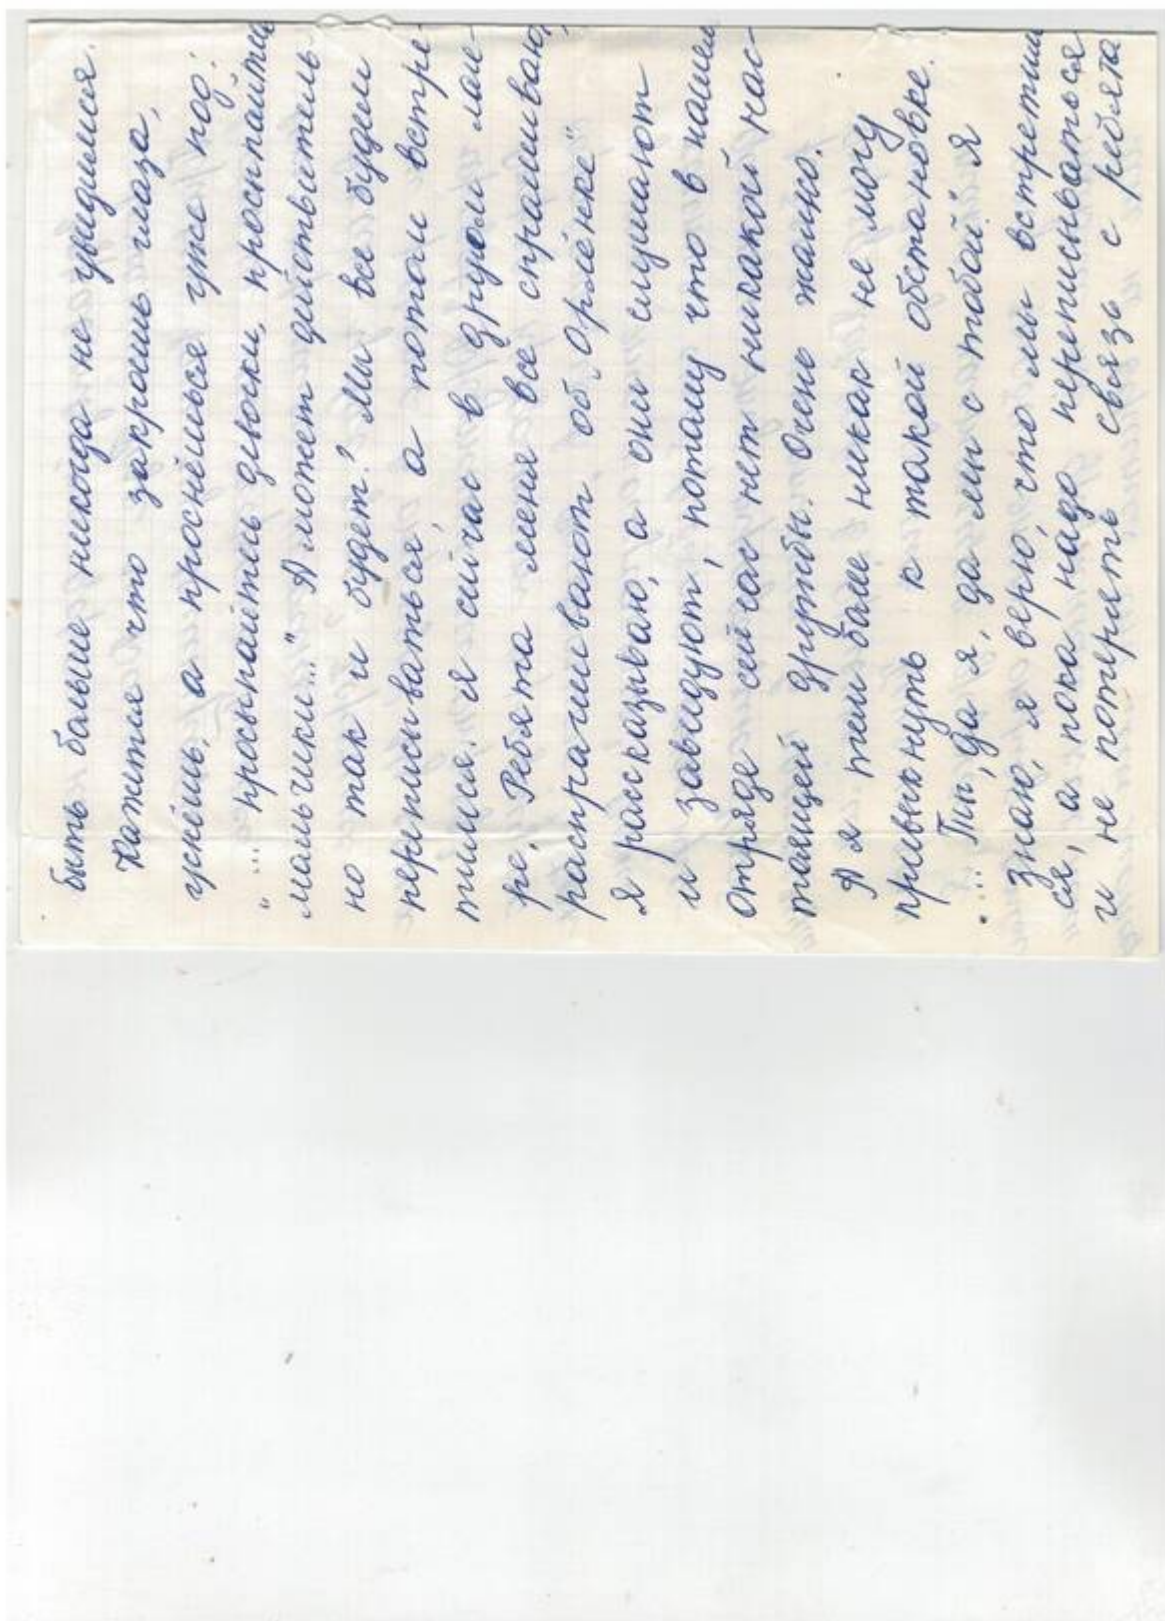 быть больше никогда не увидимся.
Кажится что закроешь глаза,
уснёшь, а проснёшься уже под:
"... просыпайтесь девочки, просыпайтесь
мальчики..." А может действитель-
но так и будет? Мы все будем
переписываться, а потом встре-
тимся. Я сейчас в другом лаге-
ре. Ребята меня все спрашивают,
распрашивают об "Орлёнке"
Я рассказываю, а они слушают
и завидуют, потому что в нашем
отряде сейчас нет никакой нас-
тоящей дружбы. Очень жалко.
А я тем более никак не могу
привыкнуть к такой обстановке.
.... Ты, да я, да мы с тобой! Я
знаю, я верю, что мы встретим
ся, а пока надо переписываться
и не потерять связь с ребята